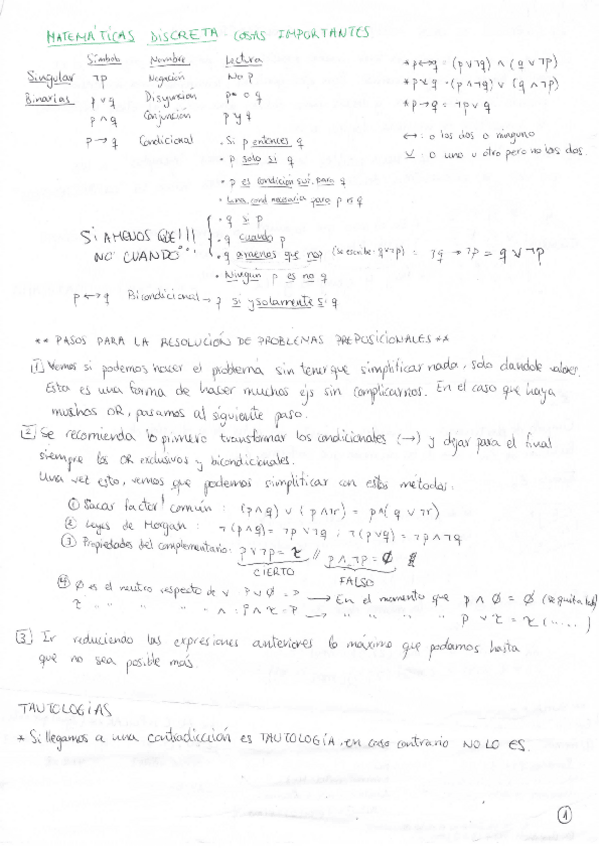 MATEMÁTICAS DISCRETA - COSAS IMPORTANTES
Símbolo Nombre Lectura
Singular ¬p Negación No p
Binarias p ∨ q Disyunción p o q
p ∧ q Conjunción p y q
p → q Condicional · Si p entonces q
· p solo si q
· p es condición suf. para q
· Una cond necesaria para p es q
· q si p
· q cuando p
· q a menos que no p (se escribe q∨¬p) = ¬q → ¬p = q ∨ ¬p
· Ningún p es no q
SI A MENOS QUE!!!
NO CUANDO!!
p ↔ q Bicondicional → p si y solamente si q
* p ↔ q = (p ∨ ¬q) ∧ (q ∨ ¬p)
* p ⊻ q = (p ∧ ¬q) ∨ (q ∧ ¬p)
* p → q = ¬p ∨ q
↔ : o los dos o ninguno
⊻ : o uno u otro pero no los dos.
** PASOS PARA LA RESOLUCIÓN DE PROBLEMAS PREPOSICIONALES **
1 Vemos si podemos hacer el problema sin tener que simplificar nada, solo dandole valores.
Esta es una forma de hacer muchos ejs sin complicarnos. En el caso que haya
muchos OR, pasamos al siguiente paso.
2 Se recomienda lo primero transformar los condicionales (→) y dejar para el final
siempre los OR exclusivos y bicondicionales.
Una vez esto, vemos que podemos simplificar con estos métodos:
① Sacar factor común : (p∧q) ∨ (p∧¬r) = p∧(q ∨ ¬r)
② Leyes de Morgan : ¬(p∧q) = ¬p ∨ ¬q ; ¬(p∨q) = ¬p ∧ ¬q
③ Propiedades del complementario: p ∨ ¬p = τ // p ∧ ¬p = Ø
CIERTO FALSO
④ Ø es el neutro respecto de ∨ : P ∨ Ø = P → En el momento que p ∧ Ø = Ø (se quita todo)
τ " " " " ∧ : P ∧ τ = P → " " " " p ∨ τ = τ (.....)
3 Ir reduciendo las expresiones anteriores lo máximo que podamos hasta
que no sea posible más.
TAUTOLOGÍAS
* Si llegamos a una contradicción es TAUTOLOGÍA, en caso contrario NO LO ES.
1